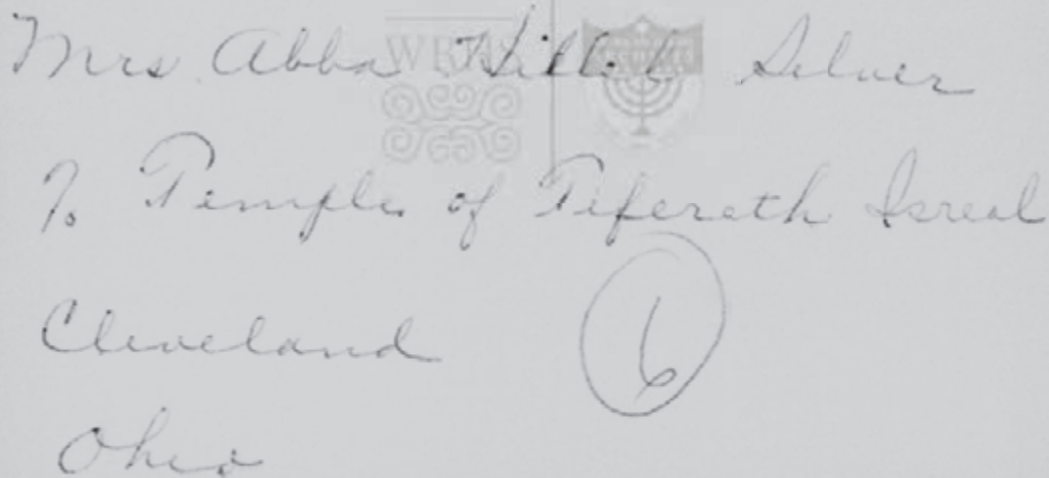 Mrs Abba Hillel Silver
% Temple of Tifereth Isreal
Cleveland
6
Ohio